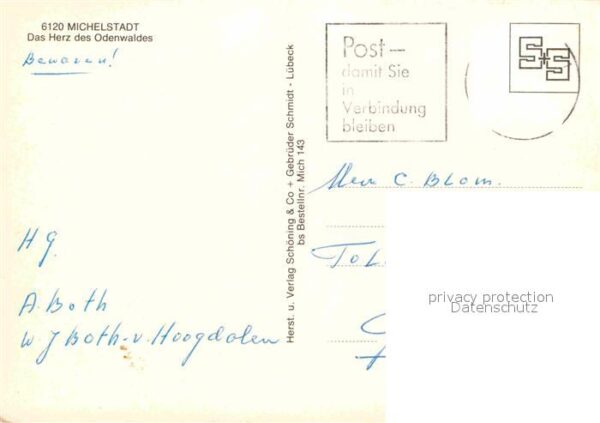 6120 MICHELSTADT
Das Herz des Odenwaldes
Bewaren!
H G.
A. Both
W J Both-v. Hoogdalen
Herst. u. Verlag Schöning & Co + Gebrüder Schmidt - Lübeck
bs Bestellnr. Mich 143
Post -
damit Sie
in
Verbindung
bleiben
S+S
C. Blom.
privacy protection
Datenschutz